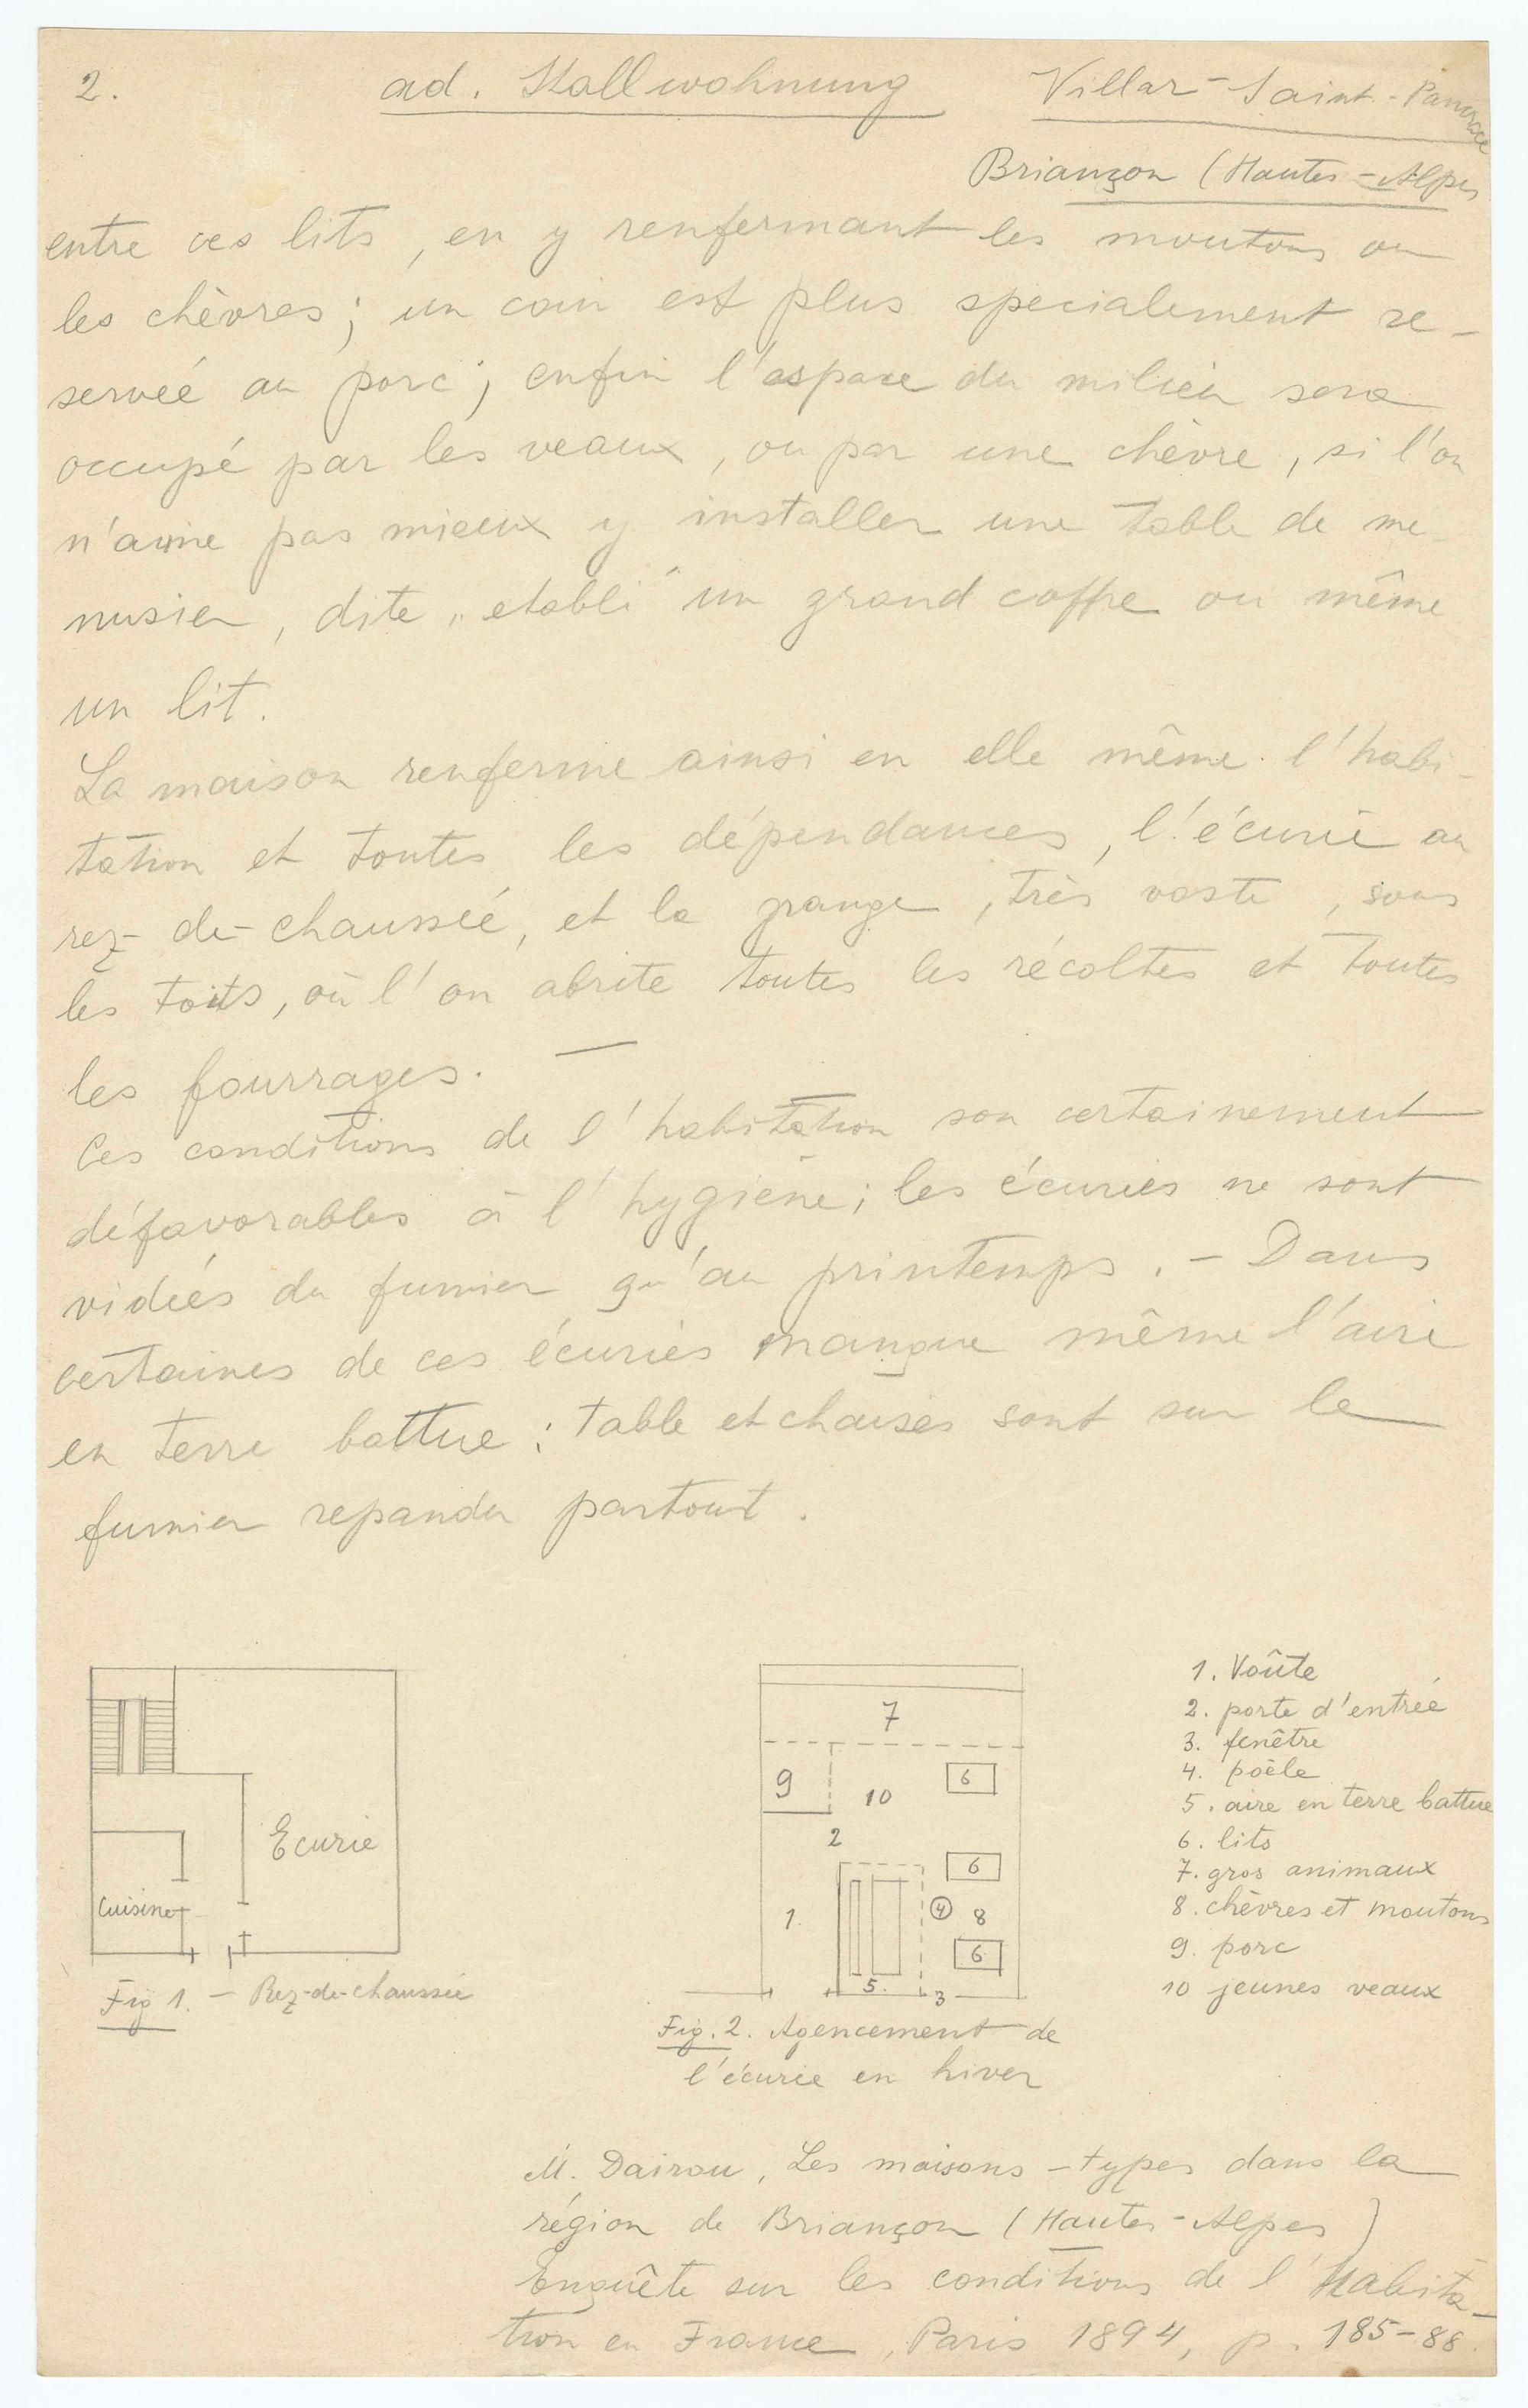 2.
ad. Stallwohnung
Villar-Saint-Pancrace
Briançon (Hautes-Alpes
entre ces lits, en y renfermant les moutons ou
les chèvres; un coin est plus specialement re-
serveé au porc; enfin l'espace du milieu sera
occupé par les veaux, ou par une chèvre, si l'on
n'aime pas mieux y installer une table de me-
nusier, dite „etabli" un grand coffre ou même
un lit.
La maison renferme ainsi en elle même l'habi-
tation et toutes les dépendances, l'écurie au
rez-de-chaussée, et la grange, très vaste, sous
les toits, où l'on abrite toutes les récoltes et toutes
les fourrages. —
Ces conditions de l'habitation son certainement
défavorables à l'hygiène; les écuries ne sont
vidées du fumier qu'au printemps. - Dans
certaines de ces écuries manque même l'aire
en terre battue; table et chaises sont sur le
fumier repandu partout.
Ecurie
Cuisine
Fig 1. - Rez-de-chaussée
7
9
10
6
2
6
1.
4
8
6
5.
3
Fig. 2. Agencement de
l'écurie en hiver
1. Voûte
2. porte d'entrée
3. fenêtre
4. poêle
5. aire en terre battue
6. lits
7. gros animaux
8. chèvres et moutons
9. porc
10 jeunes veaux
M. Dairou, Les maisons-types dans la
région de Briançon (Hautes-Alpes)
Enquête sur les conditions de l'Habita-
tion en France, Paris 1894, p. 185-88.